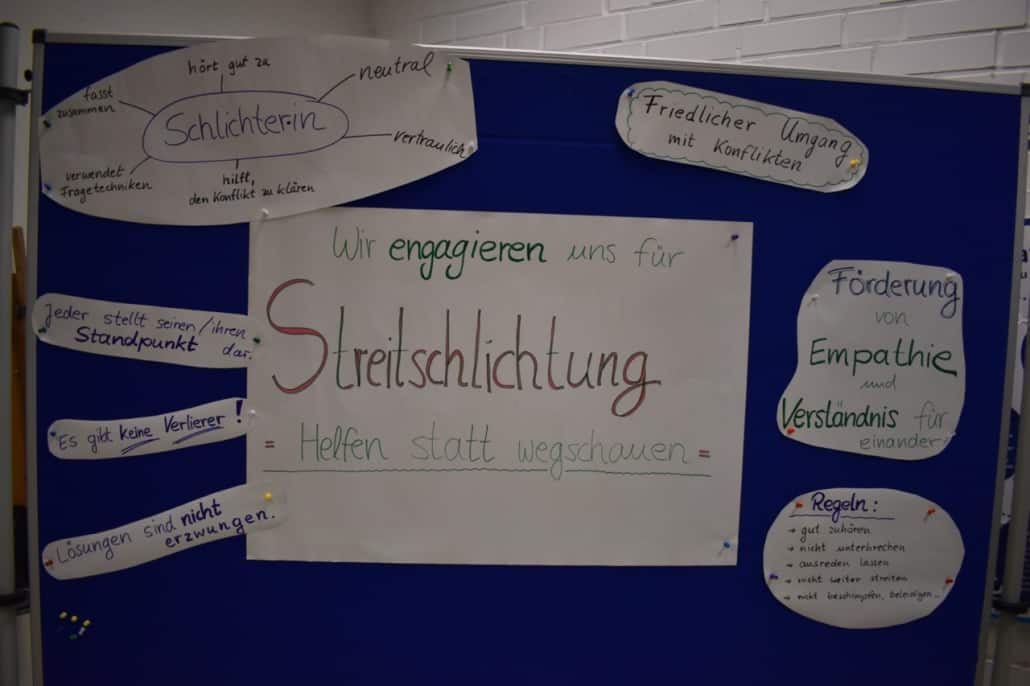 hört gut zu
neutral
fasst
zusammen
Schlichter:in
vertraulich
verwendet
Fragetechniken
hilft,
den Konflikt zu klären
Friedlicher Umgang
mit Konflikten
Wir engagieren uns für
Streitschlichtung
= Helfen statt wegschauen =
Jeder stellt seinen/ihren
Standpunkt dar.
Es gibt keine Verlierer!
Lösungen sind nicht
erzwungen.
Förderung
von
Empathie
und
Verständnis für
einander
Regeln:
→ gut zuhören
→ nicht unterbrechen
→ ausreden lassen
→ nicht weiter streiten
→ nicht beschimpfen, beleidigen...